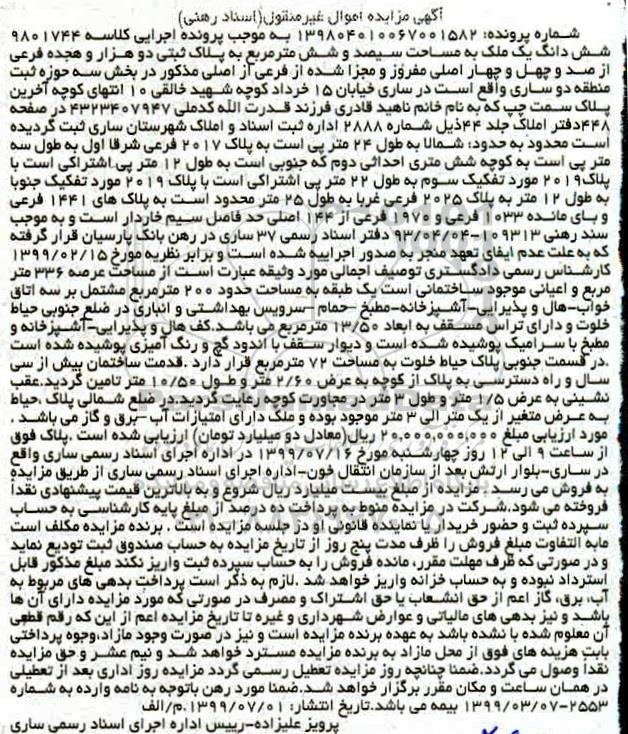 آگهی مزایده اموال غیرمنقول(اسناد رهنی)
شماره پرونده: ۱۳۹۸۰۴۰۱۰۰۶۷۰۰۱۵۸۲ به موجب پرونده اجرایی کلاسه ۹۸۰۱۷۴۴
شش دانگ یک ملک به مساحت سیصد و شش مترمربع به پلاک ثبتی دو هزار و هجده فرعی
از صد و چهل و چهار اصلی مفروز و مجزا شده از فرعی از اصلی مذکور در بخش سه حوزه ثبت
منطقه دو ساری واقع است در ساری خیابان ۱۵ خرداد کوچه شهید خالقی ۱۰ انتهای کوچه آخرین
پلاک سمت چپ که به نام خانم ناهید قادری فرزند قدرت الله کدملی ۴۳۲۳۴۰۷۹۴۷ در صفحه
۴۴۸دفتر املاک جلد ۴۴ذیل شماره ۲۸۸۸ اداره ثبت اسناد و املاک شهرستان ساری ثبت گردیده
است محدود به حدود: شمالا به طول ۲۴ متر پی است به پلاک ۲۰۱۷ فرعی شرقا اول به طول سه
متر پی است به کوچه شش متری احداثی دوم که جنوبی است به طول ۱۲ متر پی اشتراکی است با
پلاک۲۰۱۹ مورد تفکیک سوم به طول ۲۲ متر پی اشتراکی است با پلاک ۲۰۱۹ مورد تفکیک جنوبا
به طول ۱۲ متر به پلاک ۲۰۲۵ فرعی غربا به طول ۲۵ متر محدود است به پلاک های ۱۴۴۱ فرعی
و بای مانده ۱۰۳۳ فرعی و ۱۹۷۰ فرعی از ۱۴۴ اصلی حد فاصل سیم خاردار است و به موجب
سند رهنی ۱۰۹۳۱۳-۹۳/۰۴/۰۴ دفتر اسناد رسمی ۳۷ ساری در رهن بانک پارسیان قرار گرفته
که به علت عدم ایفای تعهد منجر به صدور اجراییه شده است و برابر نظریه مورخ ۱۳۹۹/۰۲/۱۵
کارشناس رسمی دادگستری توصیف اجمالی مورد وثیقه عبارت است از مساحت عرصه ۳۳۶ متر
مربع و اعیانی موجود ساختمانی است یک طبقه به مساحت حدود ۲۰۰ مترمربع مشتمل بر سه اتاق
خواب-هال و پذیرایی-آشپزخانه-مطبخ -حمام -سرویس بهداشتی و انباری در ضلع جنوبی حیاط
خلوت و دارای تراس مسقف به ابعاد ۱۳/۵۰ مترمربع می باشد.کف هال و پذیرایی-آشپزخانه و
مطبخ با سرامیک پوشیده شده است و دیوار سقف با اندود گچ و رنگ آمیزی پوشیده شده است
.در قسمت جنوبی پلاک حیاط خلوت به مساحت ۷۲ مترمربع قرار دارد .قدمت ساختمان بیش از سی
سال و راه دسترسی به پلاک از کوچه به عرض ۲/۶۰ متر و طول ۱۰/۵۰ متر تامین گردید.عقب
نشینی به عرض ۱/۵ متر و طول ۳ متر در مجاورت کوچه رعایت گردید.در ضلع شمالی پلاک ،حیاط
به عرض متغیر از یک متر الی ۳ متر موجود بوده و ملک دارای امتیازات آب -برق و گاز می باشد .
مورد ارزیابی مبلغ ۲۰,۰۰۰,۰۰۰,۰۰۰ ریال(معادل دو میلیارد تومان) ارزیابی شده است .پلاک فوق
از ساعت ۹ الی ۱۲ روز چهارشنبه مورخ ۱۳۹۹/۰۷/۱۶ در اداره اجرای اسناد رسمی ساری واقع
در ساری-بلوار ارتش بعد از سازمان انتقال خون-اداره اجرای اسناد رسمی ساری از طریق مزایده
به فروش می رسد . مزایده از مبلغ بیست میلیارد ریال شروع و به بالاترین قیمت پیشنهادی نقدا
فروخته می شود.شرکت در مزایده منوط به پرداخت ده درصد از مبلغ پایه کارشناسی به حساب
سپرده ثبت و حضور خریدار یا نماینده قانونی او در جلسه مزایده است . برنده مزایده مکلف است
مابه التفاوت مبلغ فروش را ظرف مدت پنج روز از تاریخ مزایده به حساب صندوق ثبت تودیع نماید
و در صورتی که ظرف مهلت مقرر، مانده فروش را به حساب سپرده ثبت واریز نکند مبلغ مذکور قابل
استرداد نبوده و به حساب خزانه واریز خواهد شد .لازم به ذکر است پرداخت بدهی های مربوط به
آب، برق، گاز اعم از حق انشعاب یا حق اشتراک و مصرف در صورتی که مورد مزایده دارای آن ها
باشد و نیز بدهی های مالیاتی و عوارض شهرداری و غیره تا تاریخ مزایده اعم از این که رقم قطعی
آن معلوم شده یا نشده باشد به عهده برنده مزایده است و نیز در صورت وجود مازاد،وجوه پرداختی
بابت هزینه های فوق از محل مازاد به برنده مزایده مسترد خواهد شد و نیم عشر و حق مزایده
نقدا وصول می گردد.ضمنا چنانچه روز مزایده تعطیل رسمی گردد مزایده روز اداری بعد از تعطیلی
در همان ساعت و مکان مقرر برگزار خواهد شد.ضمنا مورد رهن باتوجه به نامه وارده به شماره
۲۵۵۳-۱۳۹۹/۰۳/۰۷ بیمه می باشد.تاریخ انتشار: ۱۳۹۹/۰۷/۰۱.م/الف
پرویز علیزاده-رییس اداره اجرای اسناد رسمی ساری